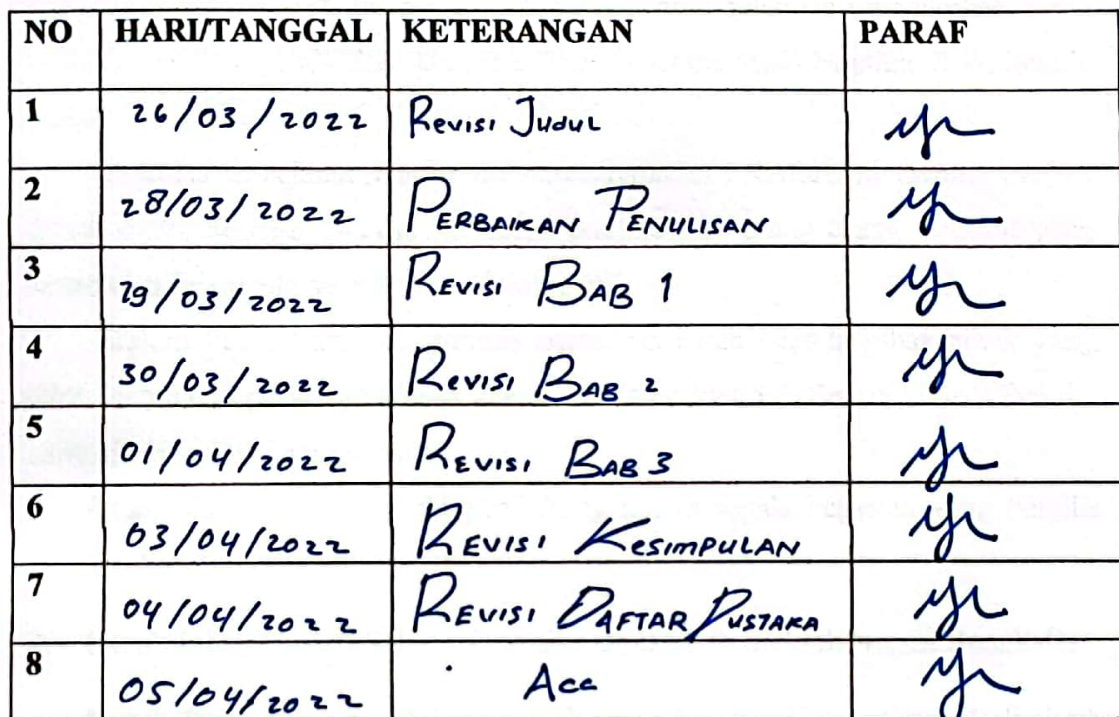 NO HARI/TANGGAL KETERANGAN PARAF
1 26/03/2022 Revisi Judul
2 28/03/2022 PERBAIKAN PENULISAN
3 29/03/2022 REVISI BAB 1
4 30/03/2022 REVISI BAB 2
5 01/04/2022 REVISI BAB 3
6 03/04/2022 REVISI KESIMPULAN
7 04/04/2022 REVISI DAFTAR PUSTAKA
8 05/04/2022 Acc